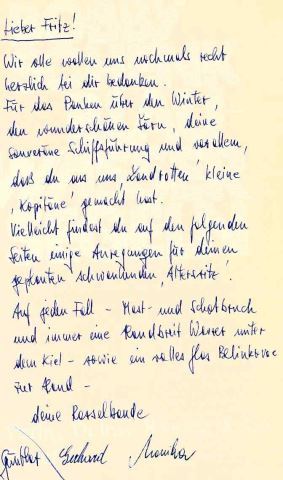 Lieber Fritz!
Wir alle wollen uns nochmals recht
herzlich bei dir bedanken.
Für das Planken über den Winter,
den wunderschönen Törn, deine
souveräne Schiffsführung und vor allem,
daß du aus uns 'Landratten' kleine
'Kapitäne' gemacht hast.
Vielleicht findest du auf den folgenden
Seiten einige Anregungen für deinen
geplanten schwimmenden 'Alterssitz'.
Auf jeden Fall - Mast- und Schotbruch
und immer eine Handbreit Wasser unter
dem Kiel - sowie ein volles Glas
zur Hand -
deine Rasselbande
Günther Gerhard Monika